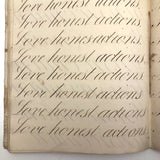 Love honest actions.
Love honest actions.
Love honest actions.
Love honest actions.
Love honest actions.
Love honest actions.
Love honest actions.